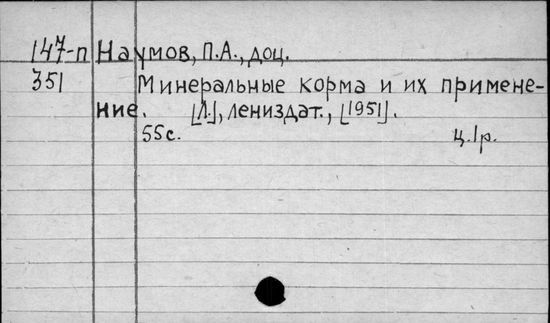 147-п Наумов, П.А., доц.
351 Минеральные корма и их примене-
ние. [Л.], Лениздат., [1951].
55с. ц.1р.